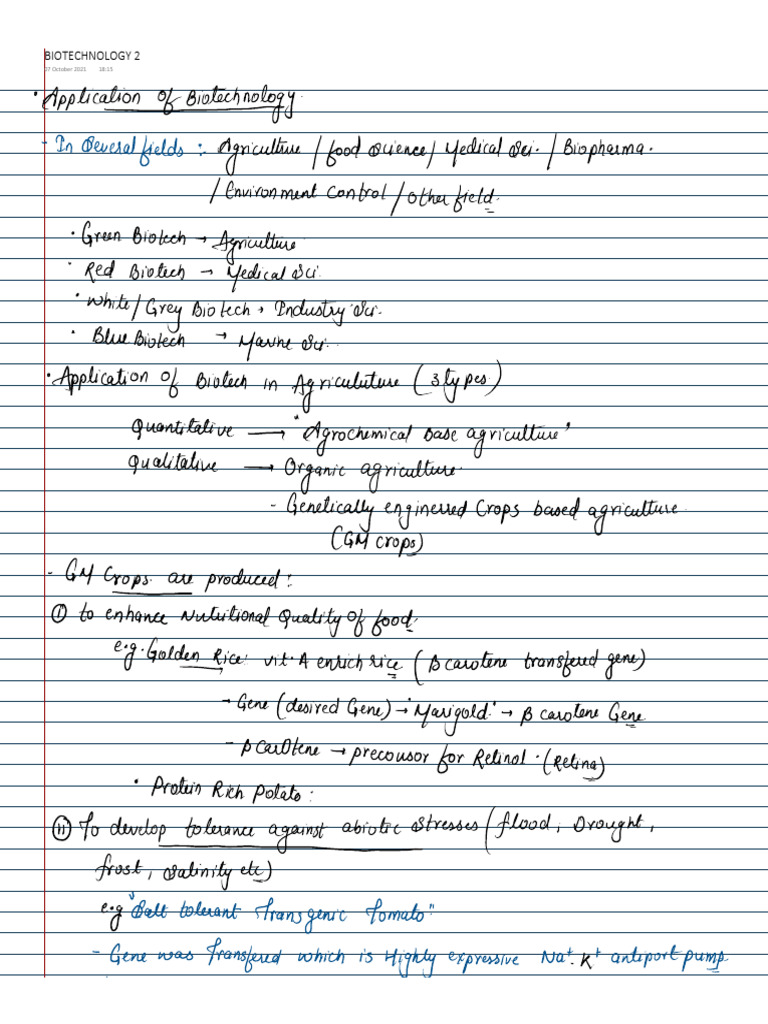 BIOTECHNOLOGY 2
27 October 2021 18:15
• Application of Biotechnology
- In Several fields :- Agriculture / food Science / Medical Sci. / Biopharma.
/ Environment Control / Other field.
• Green Biotech → Agriculture
• Red Biotech → Medical Sci.
• White / Grey Biotech → Industry Sci.
• Blue Biotech → Marine Sci.
• Application of Biotech in Agriculuture (3 types)
Quantitative → "Agrochemical base agriculture"
Qualitative → Organic agriculture
- Genetically enginerred Crops based agriculture
(GM crops)
- GM Crops are produced :
(i) to enhance Nutritional Quality of food.
e.g. Golden Rice: vit. A enrich rice (β carotene transfered gene)
- Gene (desired Gene) → "Marigold" → β carotene Gene
- β carotene → precousor for Retinol. (Retina)
• Protein Rich Potato :
(ii) To develop tolerance against abiotic Stresses (flood, Drought,
frost, Salinity etc)
e.g "Salt tolerant Transgenic Tomato"
- Gene was Transfered which is Highly expressive Na⁺. K⁺ antiport pump